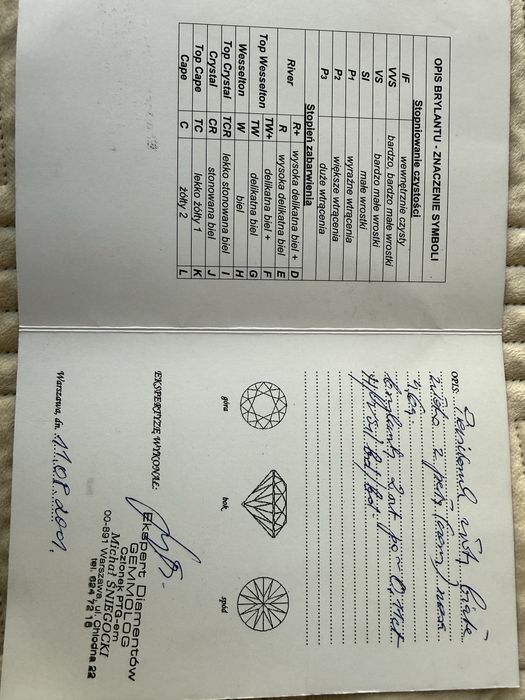 OPIS BRYLANTU - ZNACZENIE SYMBOLI
Stopniowanie czystości
IF wewnętrznie czysty
VVS bardzo, bardzo małe wrostki
VS bardzo małe wrostki
SI małe wrostki
P1 wyraźne wtrącenia
P2 większe wtrącenia
P3 duże wtrącenia
Stopień zabarwienia
River R+ wysoka delikatna biel + D
R wysoka delikatna biel E
Top Wesselton TW+ delikatna biel + F
TW delikatna biel G
Wesselton W biel H
Top Crystal TCR lekko stonowana biel I
Crystal CR stonowana biel J
Top Cape TC lekko żółty 1 K
Cape C żółty 2 L
OPIS: Pierścionek złoty białe
brylanty 2 szt po
góra bok spód
EKSPERTYZĘ WYKONAŁ:
Ekspert Diamentów
GEMMOLOG
Członek PTG-em
Michał ŚNIEGOCKI
00-891 Warszawa, ul. Chłodna 22
tel. 624 72 16
Warszawa, dn. 11.08.2001.